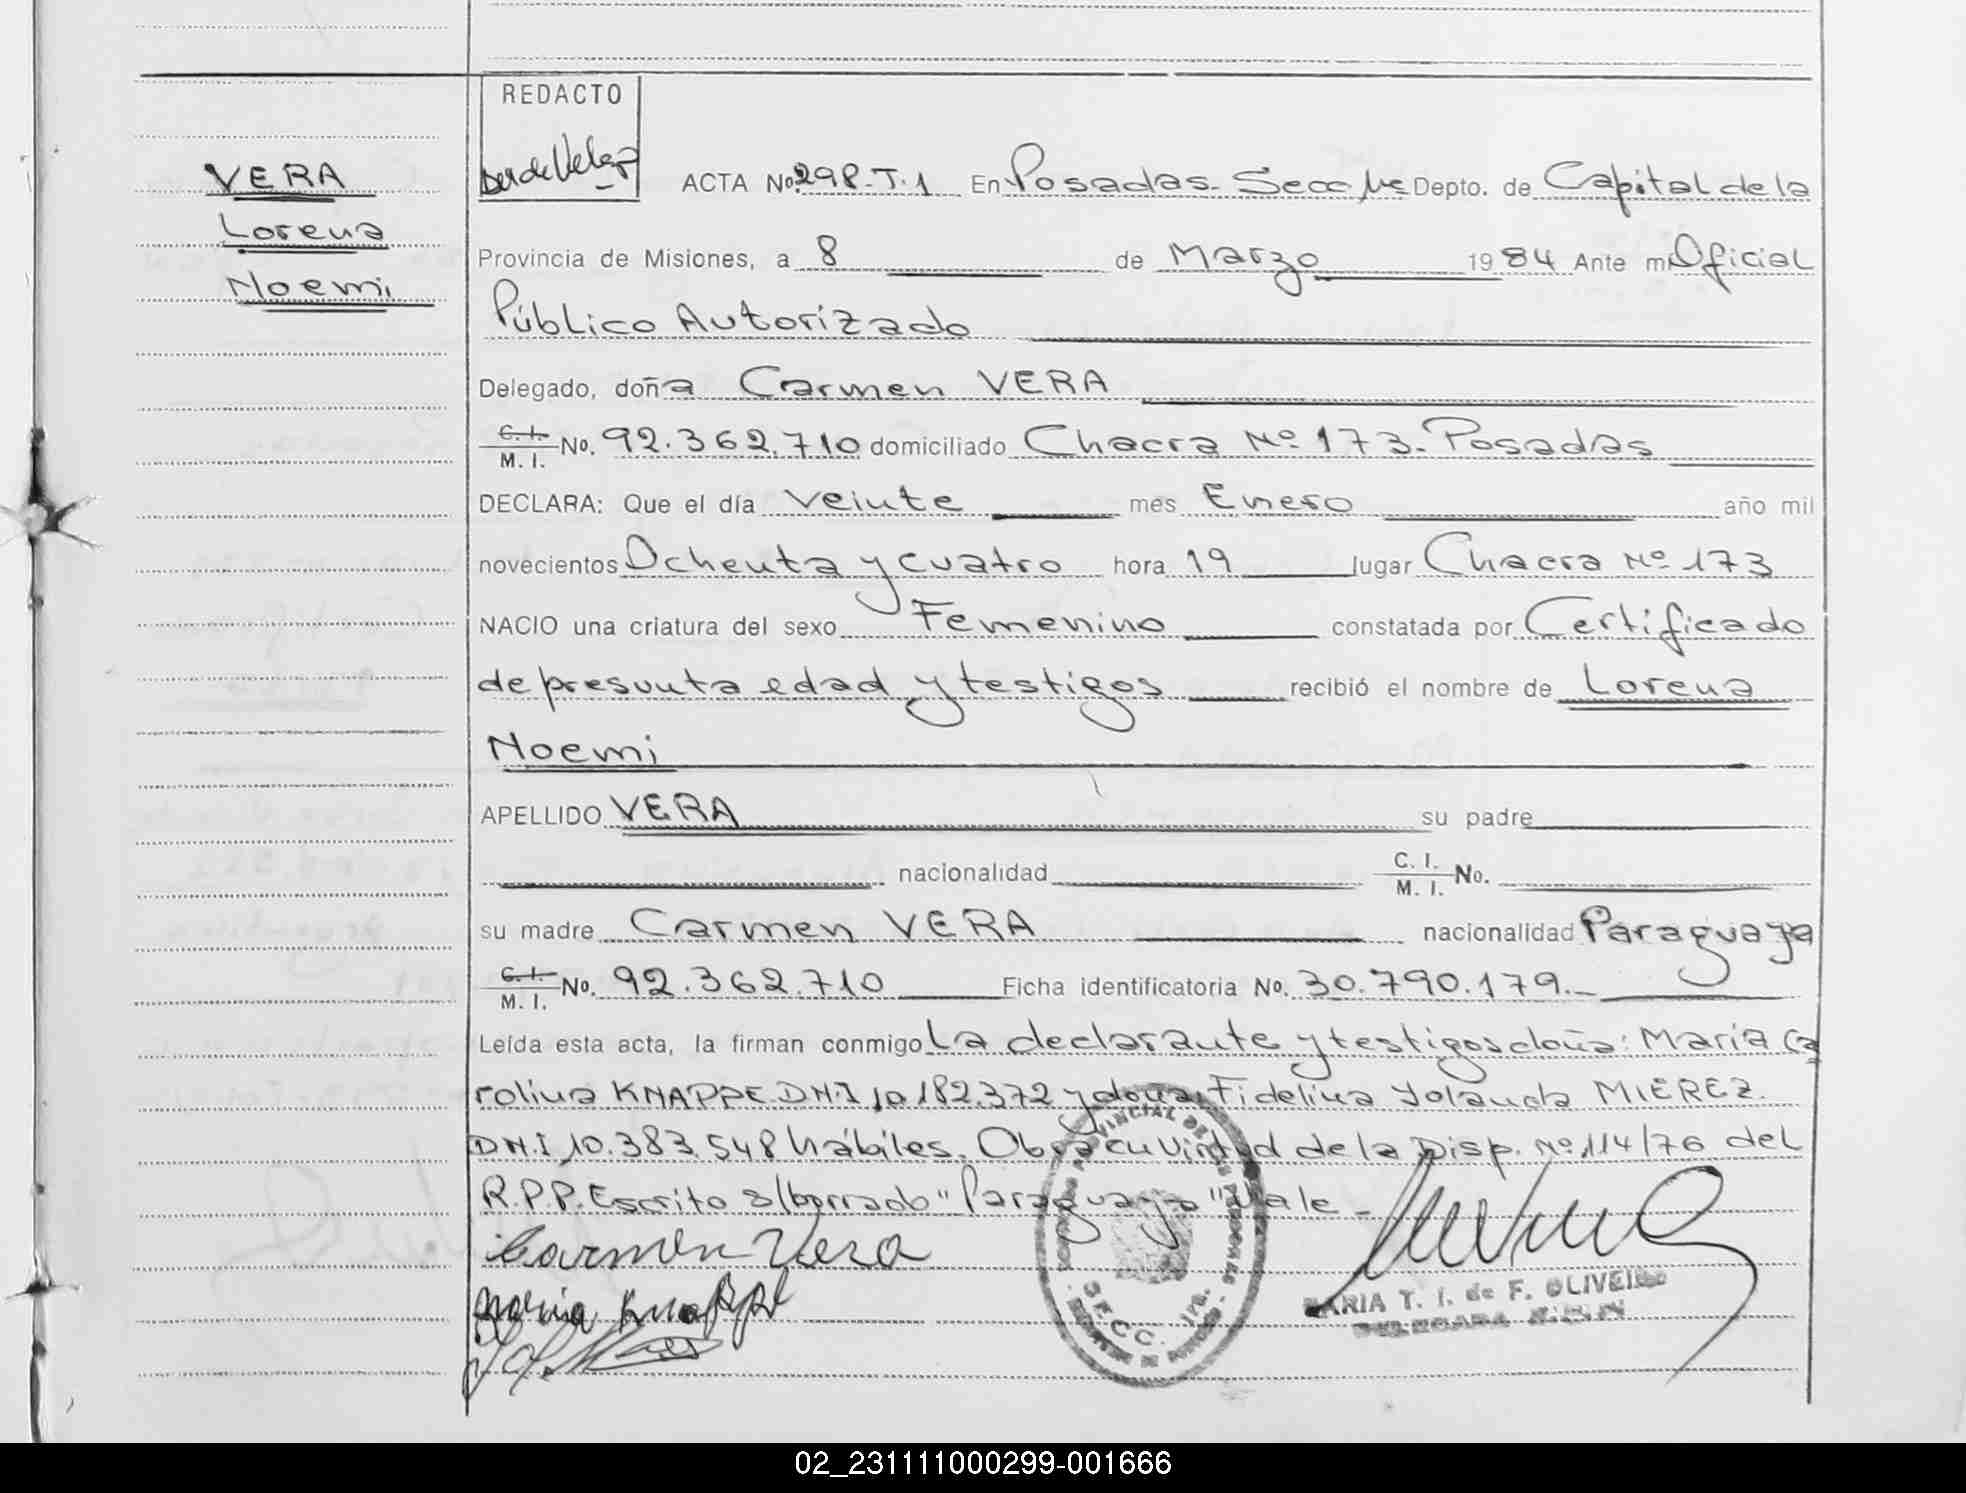 REDACTO
VERA
Lorena
Noemi
ACTA No. 298-T.1 En Posadas. Secc 1ra Depto. de Capital de la
Provincia de Misiones, a 8 de Marzo 1984 Ante mi Oficial
Público Autorizado
Delegado, doña Carmen VERA
C. I. M. I. No. 92.362.710 domiciliado Chacra Nº 173. Posadas
DECLARA: Que el día Veinte mes Enero año mil
novecientos Ochenta y cuatro hora 19 lugar Chacra Nº 173
NACIO una criatura del sexo Femenino constatada por Certificado
de presunta edad y testigos recibió el nombre de Lorena
Noemi
APELLIDO VERA su padre
nacionalidad C. I. M. I. No.
su madre Carmen VERA nacionalidad Paraguaya
C. I. M. I. No. 92.362.710 Ficha identificatoria No. 30.790.179.-
Leída esta acta, la firman conmigo La declarante y testigos doña: María Ca
rolina KNAPPE DN.I 10.182.372 y doña Fidelina Yolanda MIEREZ.
DN.I 10.383.548 hábiles. Obra en virtud de la Disp. Nº 114/76 del
R.P.P. Escrito s/borrado "Paraguaya" Vale -
Carmen Vera
Maria Knappe
SECC. 1ra.
MARIA T. I. de F. OLIVEIRA
DELEGADA
02_231111000299-001666